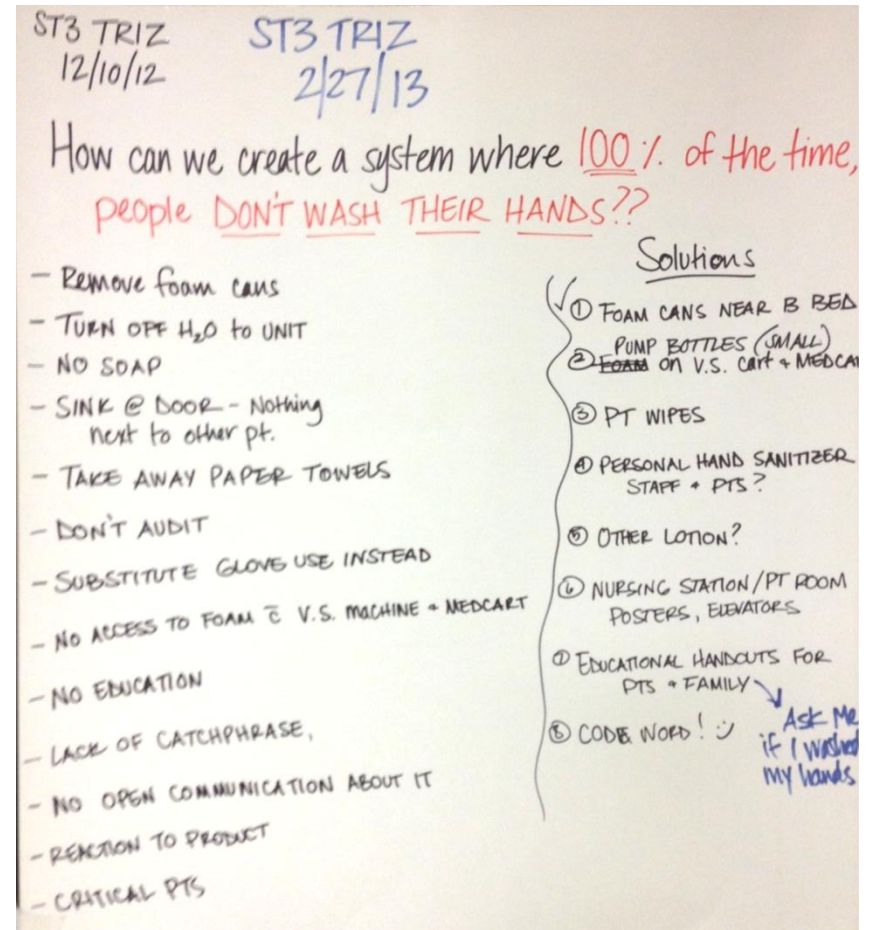 ST3 TRIZ
12/10/12
ST3 TRIZ
2/27/13
How can we create a system where 100% of the time,
people DON'T WASH THEIR HANDS??
- Remove foam cans
- TURN OFF H₂O to UNIT
- NO SOAP
- SINK @ DOOR - Nothing
next to other pt.
- TAKE AWAY PAPER TOWELS
- DON'T AUDIT
- SUBSTITUTE GLOVE USE INSTEAD
- NO ACCESS TO FOAM c̄ V.S. MACHINE + MEDCART
- NO EDUCATION
- LACK OF CATCHPHRASE,
- NO OPEN COMMUNICATION ABOUT IT
- REACTION TO PRODUCT
- CRITICAL PTS
Solutions
✓ ① FOAM CANS NEAR B BED
PUMP BOTTLES (SMALL)
② FOAM on V.S. cart + MEDCA
③ PT WIPES
④ PERSONAL HAND SANITIZER
STAFF + PTS?
⑤ OTHER LOTION?
⑥ NURSING STATION/PT ROOM
POSTERS, ELEVATORS
⑦ EDUCATIONAL HANDOUTS FOR
PTS + FAMILY
Ask Me
if I washed
my hands
⑧ CODE WORD! :)